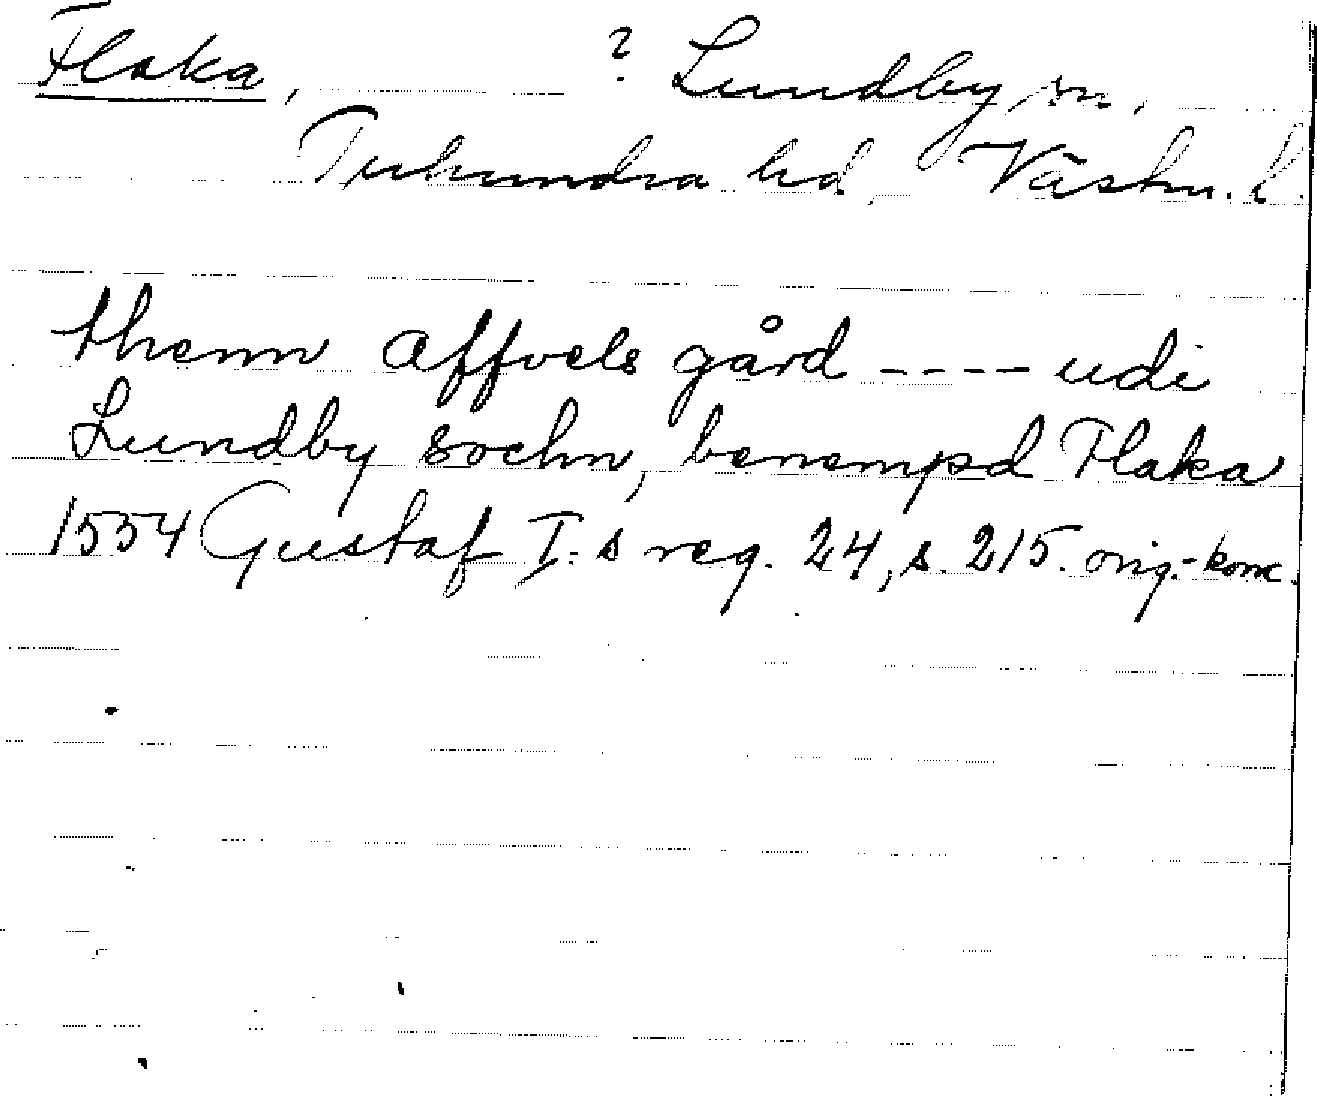 Flaka, ? Lundby sn,
Tuhundra hd, Västm. l.
thenn affvels gård ---- udi
Lundby sochn, benempd Flaka
1554 Gustaf I:s reg. 24, s. 215. orig.-konc.